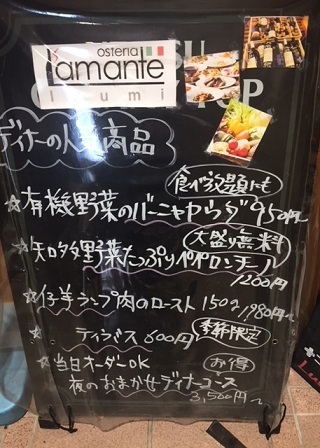 osteria
L'amante
Izumi
ディナーの人気商品
食べ放題にも
☆有機野菜のバーニャカウダ 950円〜
大盛り無料
☆知多野菜たっぷりペペロンチーノ
1200円
☆仔羊ランプ肉のロースト 150g 1,980円〜
ティラミス 600円
季節限定
☆当日オーダーOK
お得
夜のおまかせディナーコース
3,500円〜